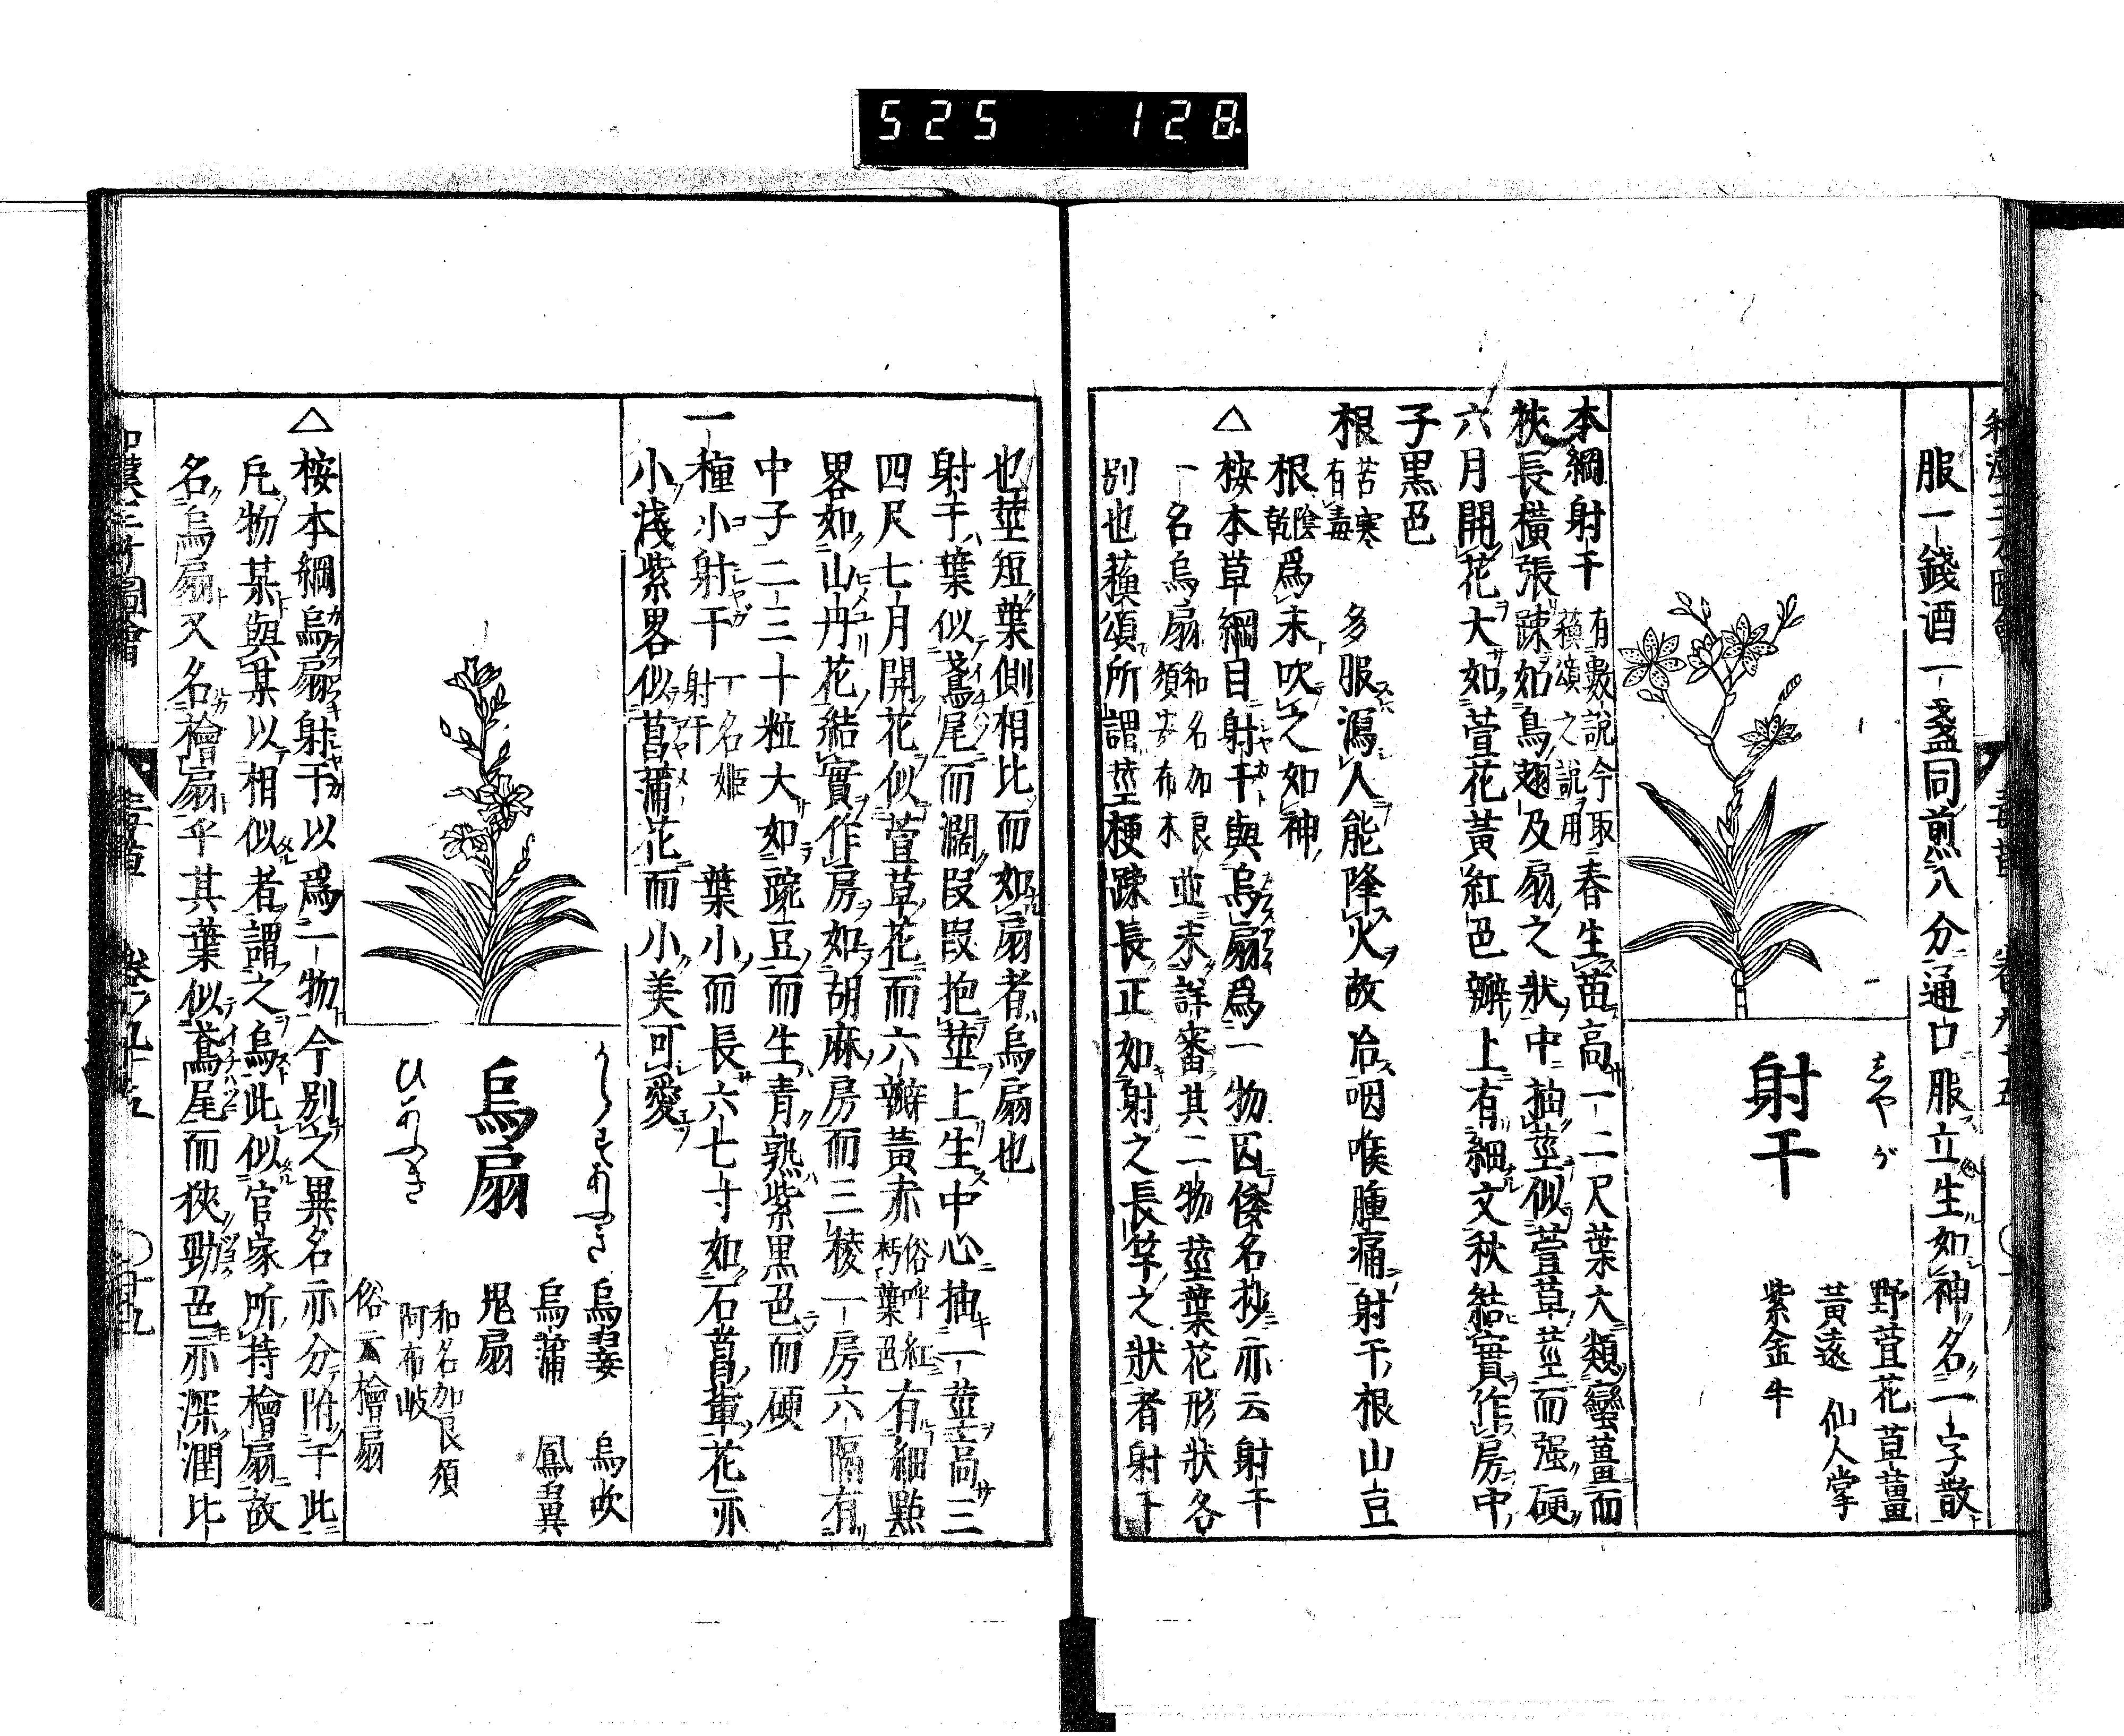 525 128
服一錢酒一盞同煎八分通口服立生如神名一字散
射干
しやが
野萱花 草薑
黃遠 仙人掌
紫金牛
本綱射干有數說今取蘓頌之說用春生苗高一二尺葉大類蠻薑而
狹長橫張踈如鳥翅及扇之狀中抽莖似萱草莖而强硬
六月開花大如萱花黃紅色瓣上有細文秋結實作房中
子黑色
根苦寒有毒 多服瀉人能降火故治咽喉腫痛射干根山豆
根陰乾爲末吹之如神
△按本草綱目射干與烏扇爲一物因倭名抄亦云射干
一名烏扇和名加良須安布木並未詳審其二物莖葉花形狀各
別也蘓頌所謂莖梗踈長正如射之長竿之狀者射干
也莖短葉側相比而如扇者烏扇也
射干葉似鳶尾而濶叚叚抱莖上生中心抽一莖高三
四尺七月開花似萱草花而六瓣黃赤俗呼紅朽葉色有細點
畧如山丹花結實作房如胡麻房而三稜一房六隔有
中子二三十粒大如豌豆而生青熟紫黑色而硬
一種小射干一名姬射干 葉小而長六七寸如石菖葉花亦
小淺紫畧似菖蒲花而小美可愛
烏扇
からすあふぎ
ひあふぎ
烏翣 烏吹
烏蒲 鳳翼
鬼扇
和名加良須阿布岐
俗云檜扇
△按本綱烏扇射干以爲一物今別之異名亦分附于此
凡物某與某以相似者謂之烏此似官家所持檜扇故
名烏扇又名檜扇乎其葉似鳶尾而狹勁色亦深潤比